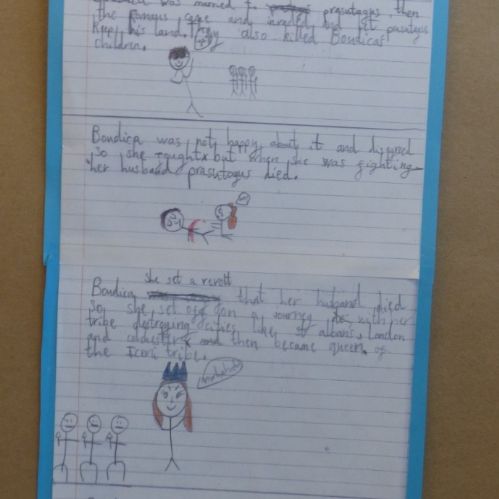 was married to prasutagus, then
the romans came and invaded and let prasutagus
keep his land. They also killed Boudicas
children.
Boudica was not happy about it and disgreed
so she fought but when she was fighting
her husband prasutagus died.
she set a revolt
Boudica that her husband died
so she set off on a journey with her
tribe destroying cities like st albans, london
and colchester and then became queen of
the Iceni tribe.